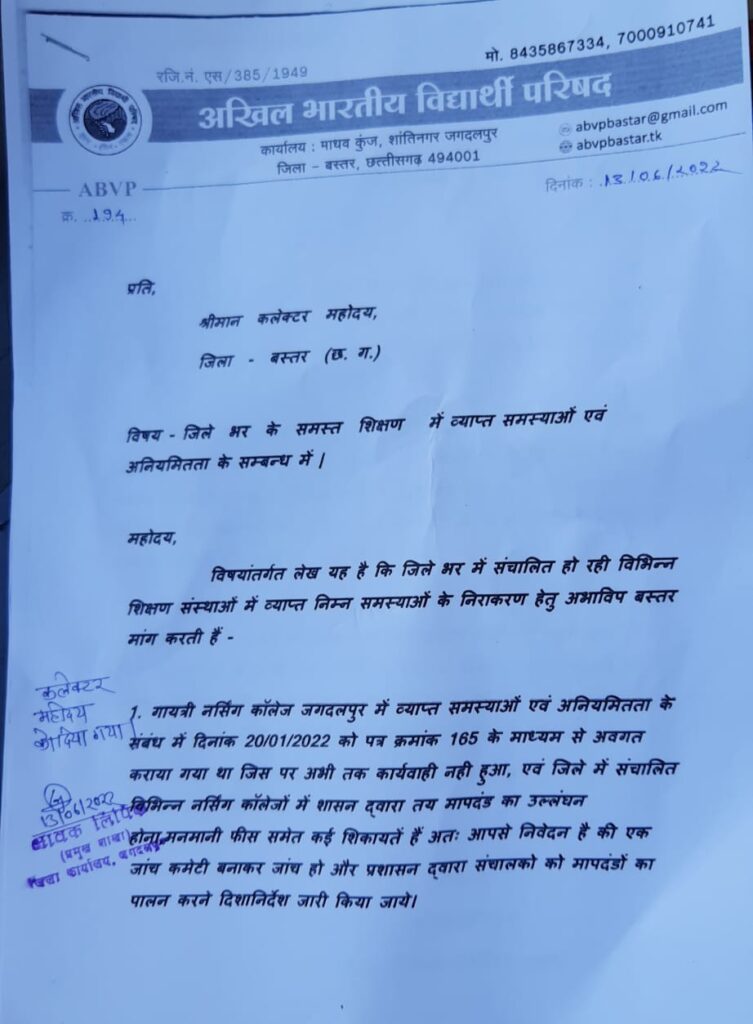 मो. 8435867334, 7000910741
रजि.नं. एस/385/1949
अखिल भारतीय विद्यार्थी परिषद
कार्यालय : माधव कुंज, शांतिनगर जगदलपुर
जिला - बस्तर, छत्तीसगढ़ 494001
abvpbastar@gmail.com
abvpbastar.tk
ABVP
क्र. 194
दिनांक : 13/06/2022
प्रति,
श्रीमान कलेक्टर महोदय,
जिला - बस्तर (छ. ग.)
विषय - जिले भर के समस्त शिक्षण में व्याप्त समस्याओं एवं
अनियमितता के सम्बन्ध में |
महोदय,
विषयांतर्गत लेख यह है कि जिले भर में संचालित हो रही विभिन्न
शिक्षण संस्थाओं में व्याप्त निम्न समस्याओं के निराकरण हेतु अभाविप बस्तर
मांग करती हैं -
1. गायत्री नर्सिंग कॉलेज जगदलपुर में व्याप्त समस्याओं एवं अनियमितता के
संबंध में दिनांक 20/01/2022 को पत्र क्रमांक 165 के माध्यम से अवगत
कराया गया था जिस पर अभी तक कार्यवाही नही हुआ, एवं जिले में संचालित
विभिन्न नर्सिंग कॉलेजों में शासन द्वारा तय मापदंड का उल्लंघन
होना,मनमानी फीस समेत कई शिकायतें हैं अतः आपसे निवेदन है की एक
जांच कमेटी बनाकर जांच हो और प्रशासन द्वारा संचालको को मापदंडों का
पालन करने दिशानिर्देश जारी किया जाये।
कलेक्टर
महोदय
को दिया गया
13/06/2022
(प्रमुख शाखा)
कार्यालय, जगदलपुर